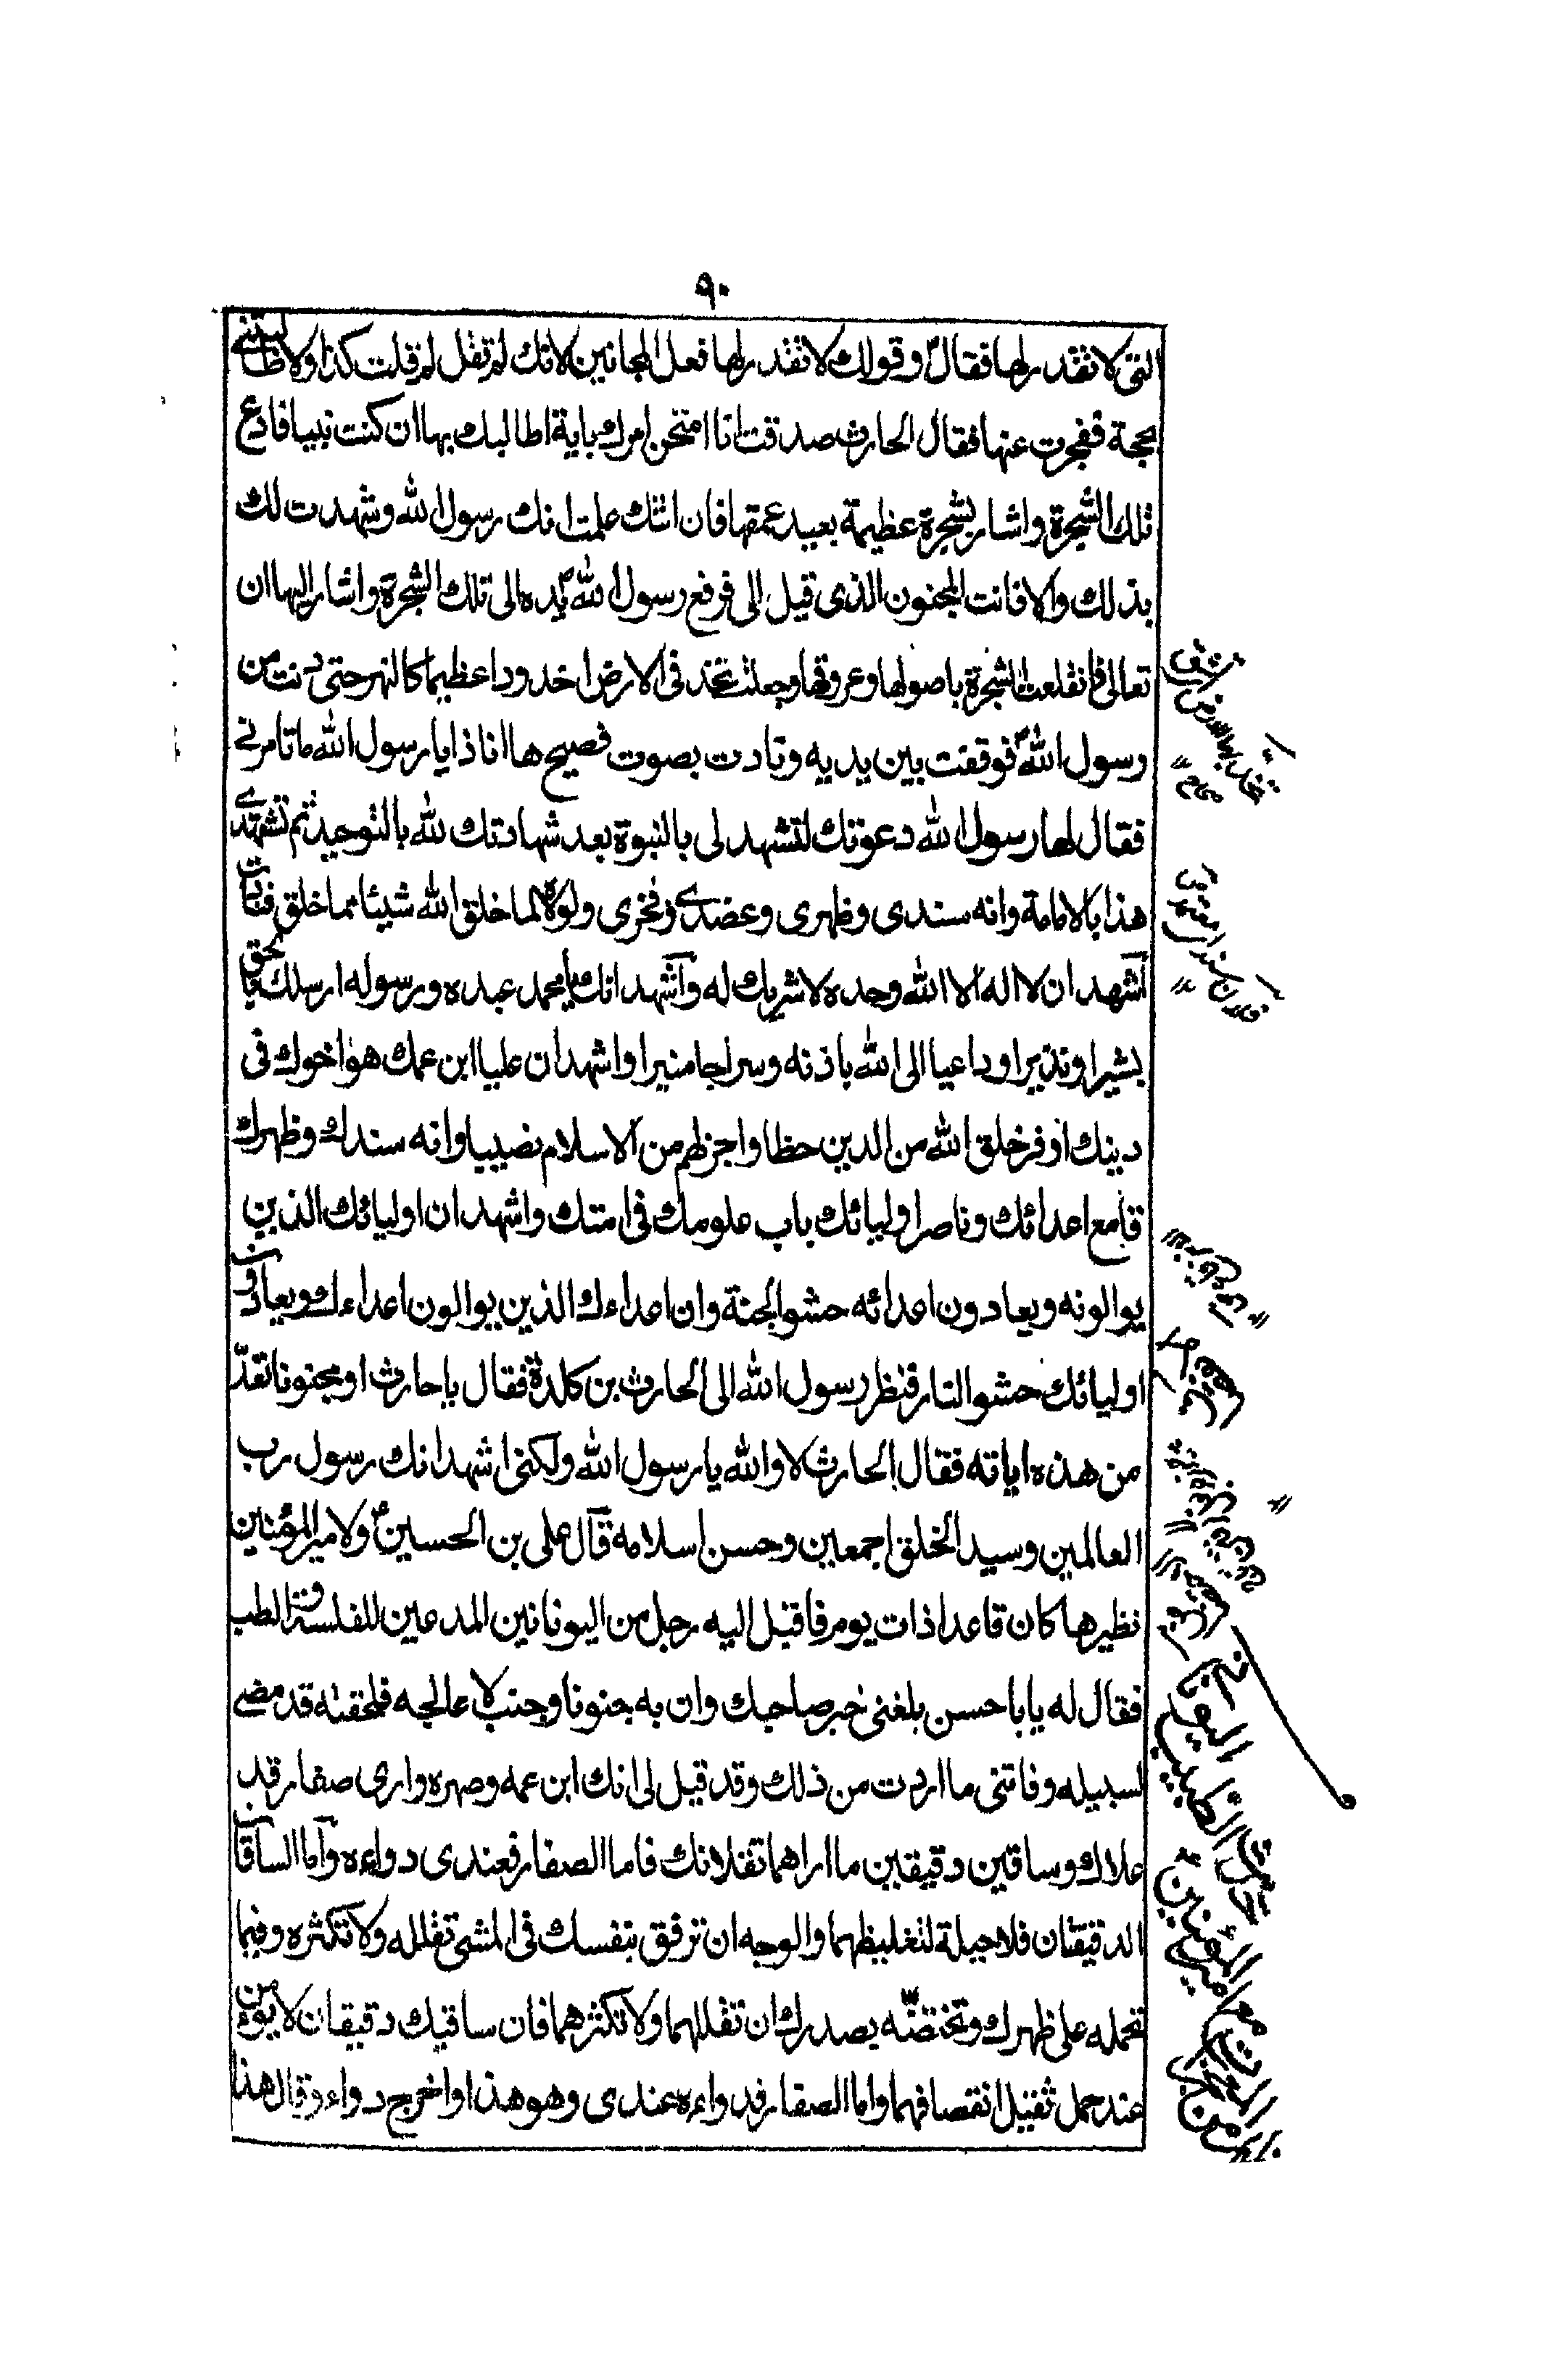 ٩٠
التى لا تقدر لها فقال وقولك لا تقدر لها فعل المجانين لانك لم تقل لم قلت كذا ولا طالبتنى
بحجة فعجزت عنها فقال الحارث صدقت انا امتحن امرك باية اطالبك بها ان كنت نبيا فادع
تلك الشجرة واشار بشجرة عظيمة بعيد عمقها فان اتتك علمت انك رسول الله وشهدت لك
بذلك والا فانت المجنون الذى قيل لى فرفع رسول الله يده الى تلك الشجرة واشار اليها ان
تعالى فانقلعت الشجرة باصولها وعروقها وجعلت تخد فى الارض اخدودا عظيما كالنهر حتى دنت من
رسول الله فوقفت بين يديه ونادت بصوت فصيح ها انا ذا يا رسول الله ما تامرنى
فقال لها رسول الله دعوتك لتشهد لى بالنبوة بعد شهادتك لله بالتوحيد ثم تشهدى
هذا بالامامة وانه سندى وظهرى وعضدى وفخرى ولولاه لما خلق الله شيئا مما خلق فنادت
اشهد ان لا اله الا الله وحده لا شريك له واشهد انك يا محمد عبده ورسوله ارسلك بالحق
بشيرا ونذيرا وداعيا الى الله باذنه وسراجا منيرا واشهد ان عليا ابن عمك هو اخوك فى
دينك اوفر خلق الله من الدين حظا واجزلهم من الاسلام نصيبا وانه سندك وظهرك
قامع اعدائك وناصر اوليائك باب علومك فى امتك واشهد ان اوليائك الذين
يوالونه ويعادون اعدائه حشو الجنة وان اعداءك الذين يوالون اعداءك ويعادون
اوليائك حشو النار فنظر رسول الله الى الحارث بن كلدة فقال يا حارث او مجنونا تعد
من هذه اياته فقال الحارث لا والله يا رسول الله ولكنى اشهد انك رسول رب
العالمين وسيد الخلق اجمعين وحسن اسلامه قال على بن الحسين ولامير المؤمنين
نظيرها كان قاعدا ذات يوم فاقبل اليه رجل من اليونانين المدعين للفلسفة والطب
فقال له يا با حسن بلغنى خبر صاحبك وان به جنونا وجئت لاعالجه فلحقته قد مضى
لسبيله وفاتنى ما اردت من ذلك وقد قيل لى انك ابن عمه وصهره وارى صفار قد
علاك وساقين دقيقين ما اراهما تقلانك فاما الصفار فعندى دواءه واما الساقان
الدقيقان فلا حيلة لتغليظهما والوجه ان ترفق بنفسك فى المشى تقلله ولا تكثره وفيما
تحمله على ظهرك وتحتضنه بصدرك ان تقللهما ولا تكثرهما فان ساقيك دقيقان لا يؤمن
عند حمل ثقيل انقصافهما واما الصفار فدواءه عندى وهو هذا واخرج دواء وقال هذا